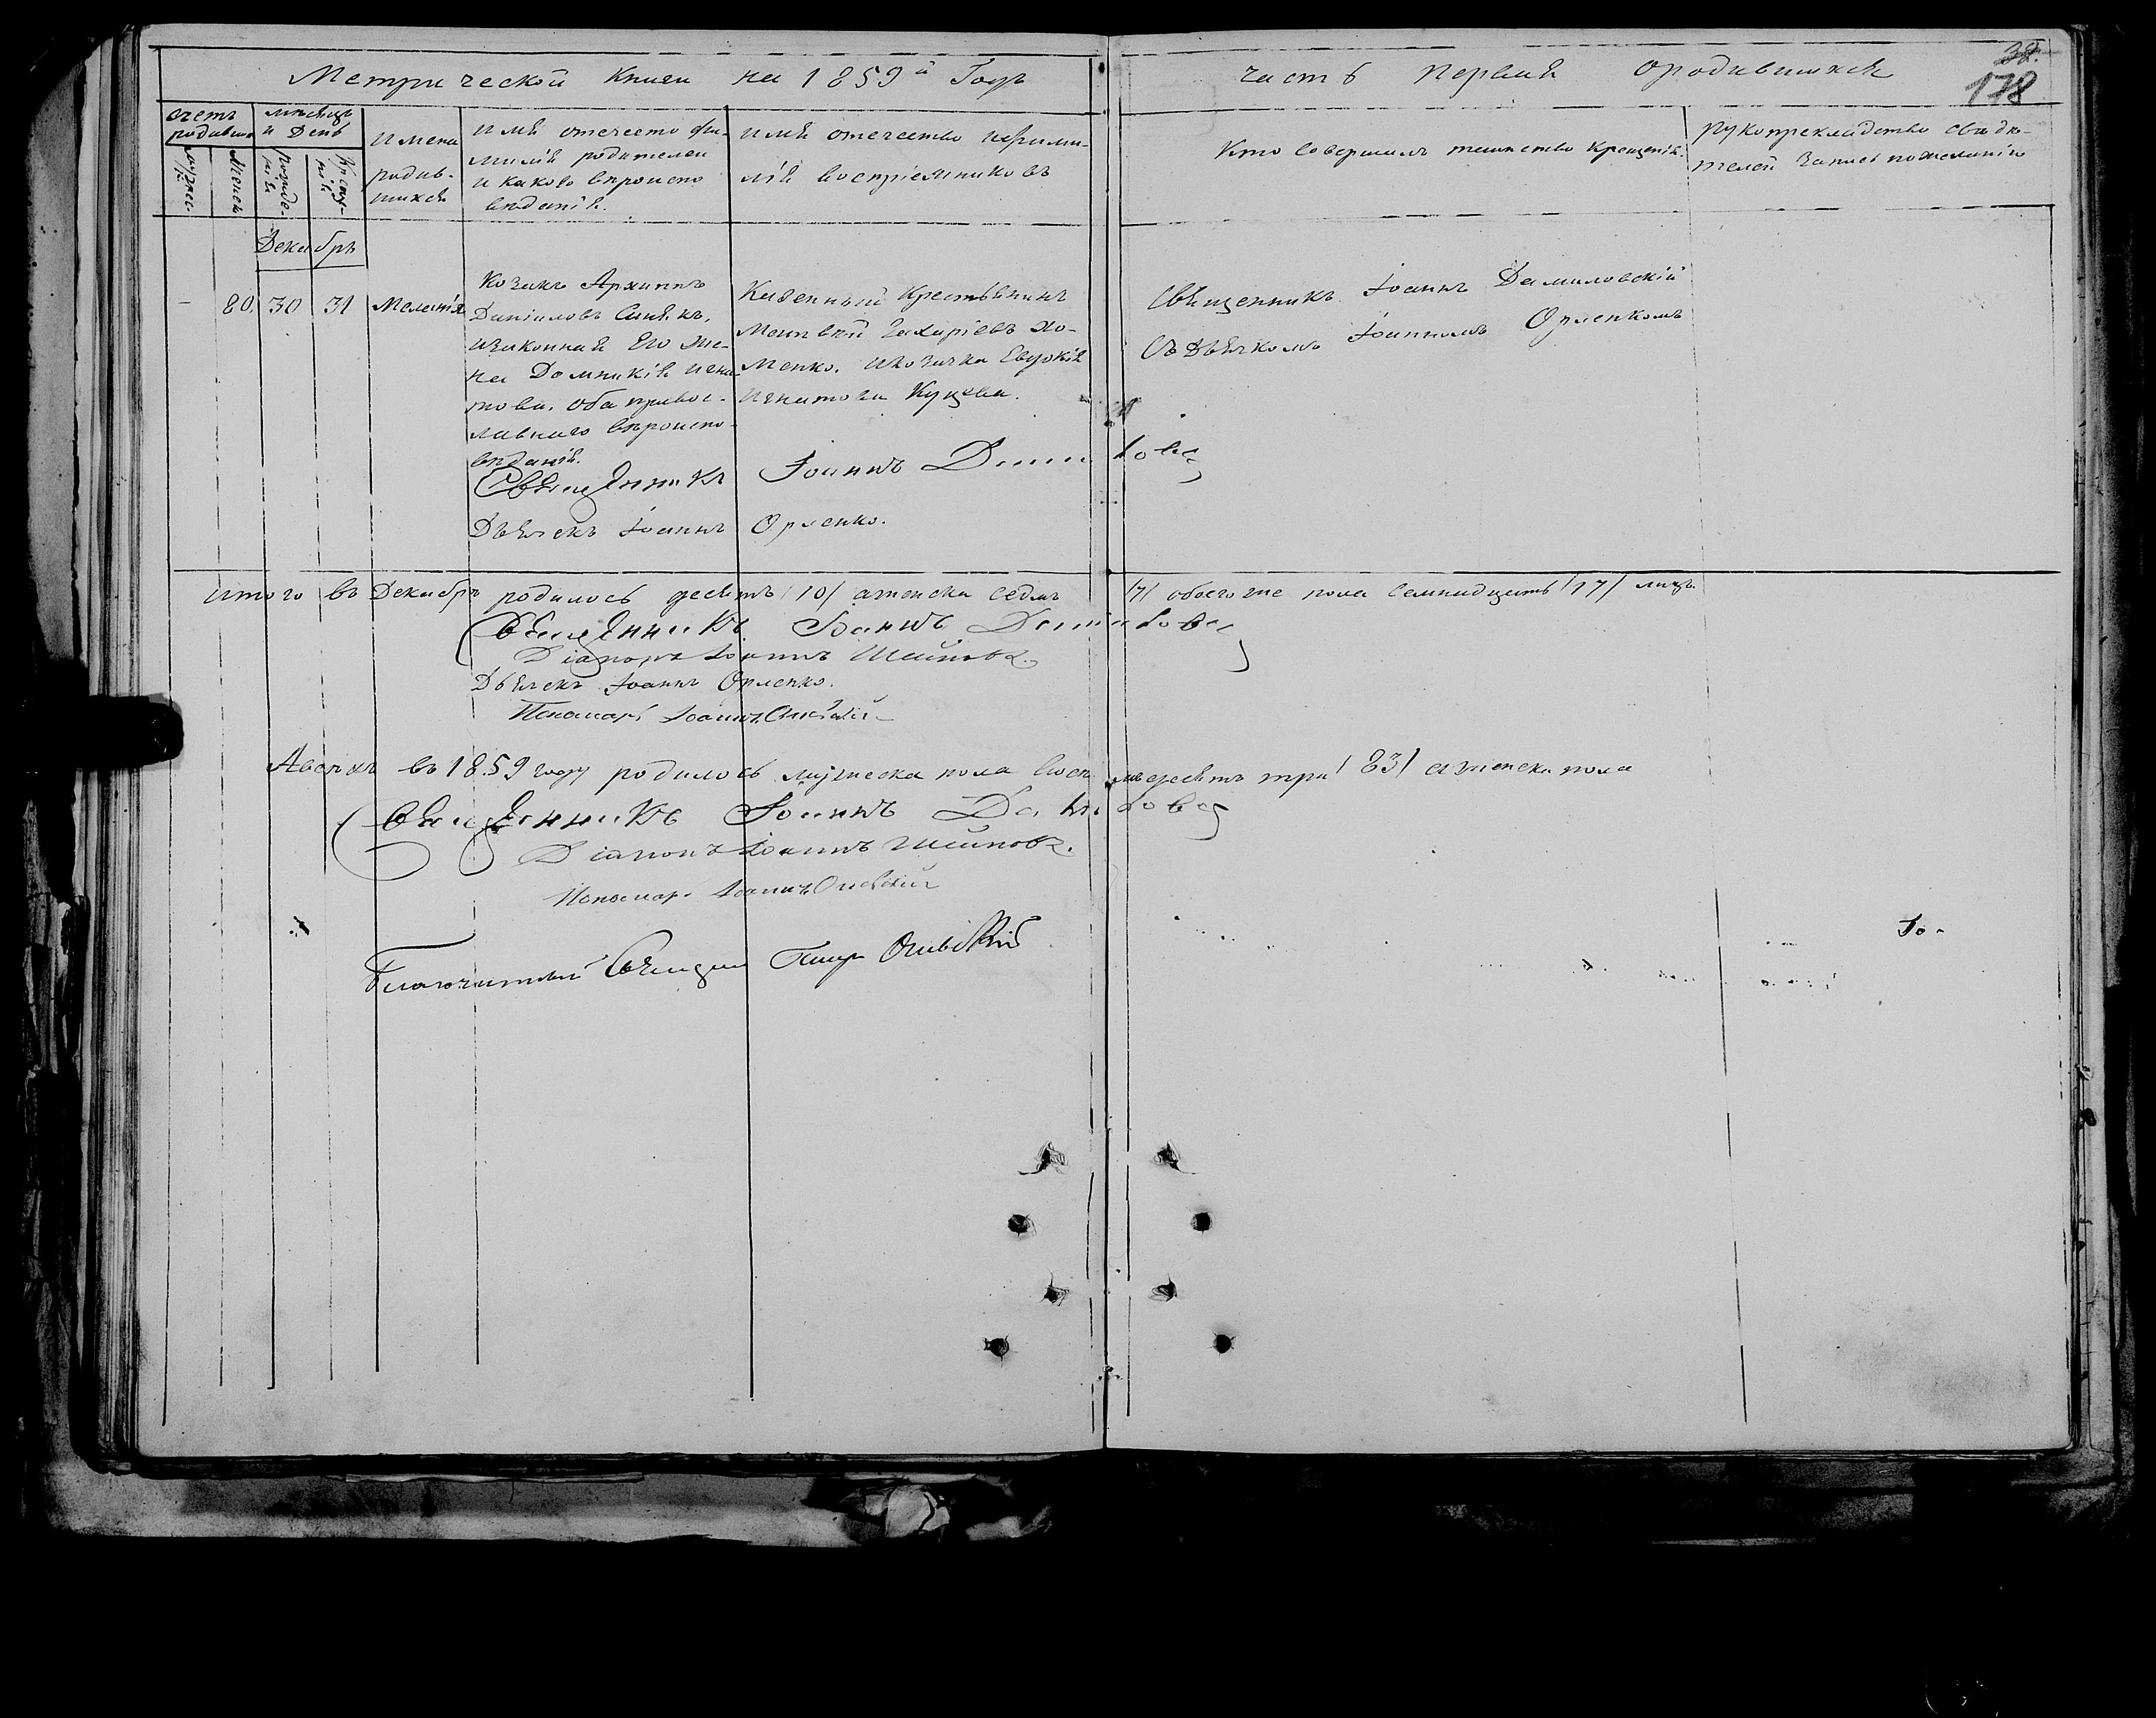 Метрической Книги на 1859й Годъ
часть первая о родившихся
38.
178
счетъ родивш.
мѣсяцъ и День
Имена родив-
шихся
имя отечество фа-
милія родителей
и какого вѣроиспо
вѣданія.
имя отечество и фами-
лія воспріемниковъ
Кто совершилъ таинство крещенія.
рукоприкладство свидѣ-
телей записи по желанію
мужес.
Женск
рожде-
нія
креще-
нія
Декабрь
- 80. 30 31 Меланія
Козакъ Архиппъ
Даніиловъ Синякъ,
и законная Его же-
на Домникія Игна
това, оба правос-
лавнаго вѣроиспо-
вѣданія.
Казенный крестьянинъ
Матвей Захаріевъ Хо-
менко. и козачка Евдокія
Игнатова Куцева.
Священникъ Іоаннъ Даниловскій
Съ Дьячкомъ Іоанномъ Орленкомъ
Священникъ Іоаннъ
Дьячекъ Іоаннъ Орленко.
Итого въ Декабрѣ родилось десять /10/ а женска седмь /7/ обоего же пола семнадцать /17/ лицъ
Священникъ Іоаннъ
Діаконъ Іоаннъ
Дьячекъ Іоаннъ Орленко.
Пономарь Іоаннъ
А всѣхъ въ 1859 году родилось мужеска пола восемьдесятъ три /83/ а женска пола
Священникъ Іоаннъ
Діаконъ Іоаннъ
Пономарь Іоаннъ
Благочинный Священ